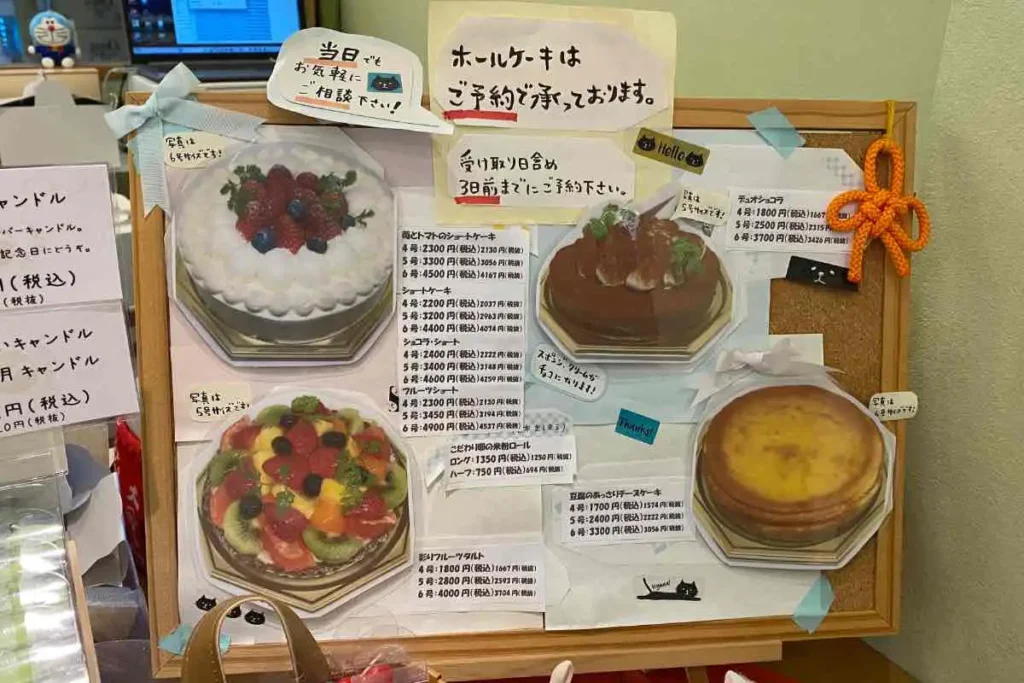 当日でも
お気軽に
ご相談下さい!
ホールケーキは
ご予約で承っております。
受け取り日含め
3日前までにご予約下さい。
Hello
写真は
6号サイズです!
苺とトマトのショートケーキ
4号:2300円(税込)2130円(税抜)
5号:3300円(税込)3056円(税抜)
6号:4500円(税込)4167円(税抜)
ショートケーキ
4号:2200円(税込)2037円(税抜)
5号:3200円(税込)2963円(税抜)
6号:4400円(税込)4074円(税抜)
ショコラ・ショート
4号:2400円(税込)2222円(税抜)
5号:3400円(税込)3148円(税抜)
6号:4600円(税込)4259円(税抜)
フルーツショート
4号:2300円(税込)2130円(税抜)
5号:3450円(税込)3194円(税抜)
6号:4900円(税込)4537円(税抜)
写真は
5号サイズです!
デュオショコラ
4号:1800円(税込)1667
5号:2500円(税込)2315円
6号:3700円(税込)3426円(税抜)
スポンジ、クリームが
チョコになります!
写真は
5号サイズです
こだわり卵の米粉ロール
ロング:1350円(税込)1250円(税抜)
ハーフ:750円(税込)694円(税抜)
Thanks!
写真は
6号サイズです!
豆腐のあっさりチーズケーキ
4号:1700円(税込)1574円(税抜)
5号:2400円(税込)2222円(税抜)
6号:3300円(税込)3056円(税抜)
彩りフルーツタルト
4号:1800円(税込)1667円(税抜)
5号:2800円(税込)2593円(税抜)
6号:4000円(税込)3704円(税抜)
ャンドル
バーキャンドル。
記念日にどうぞ。
円(税込)
(税抜)
いキャンドル
月キャンドル
円(税込)
0円(税抜)